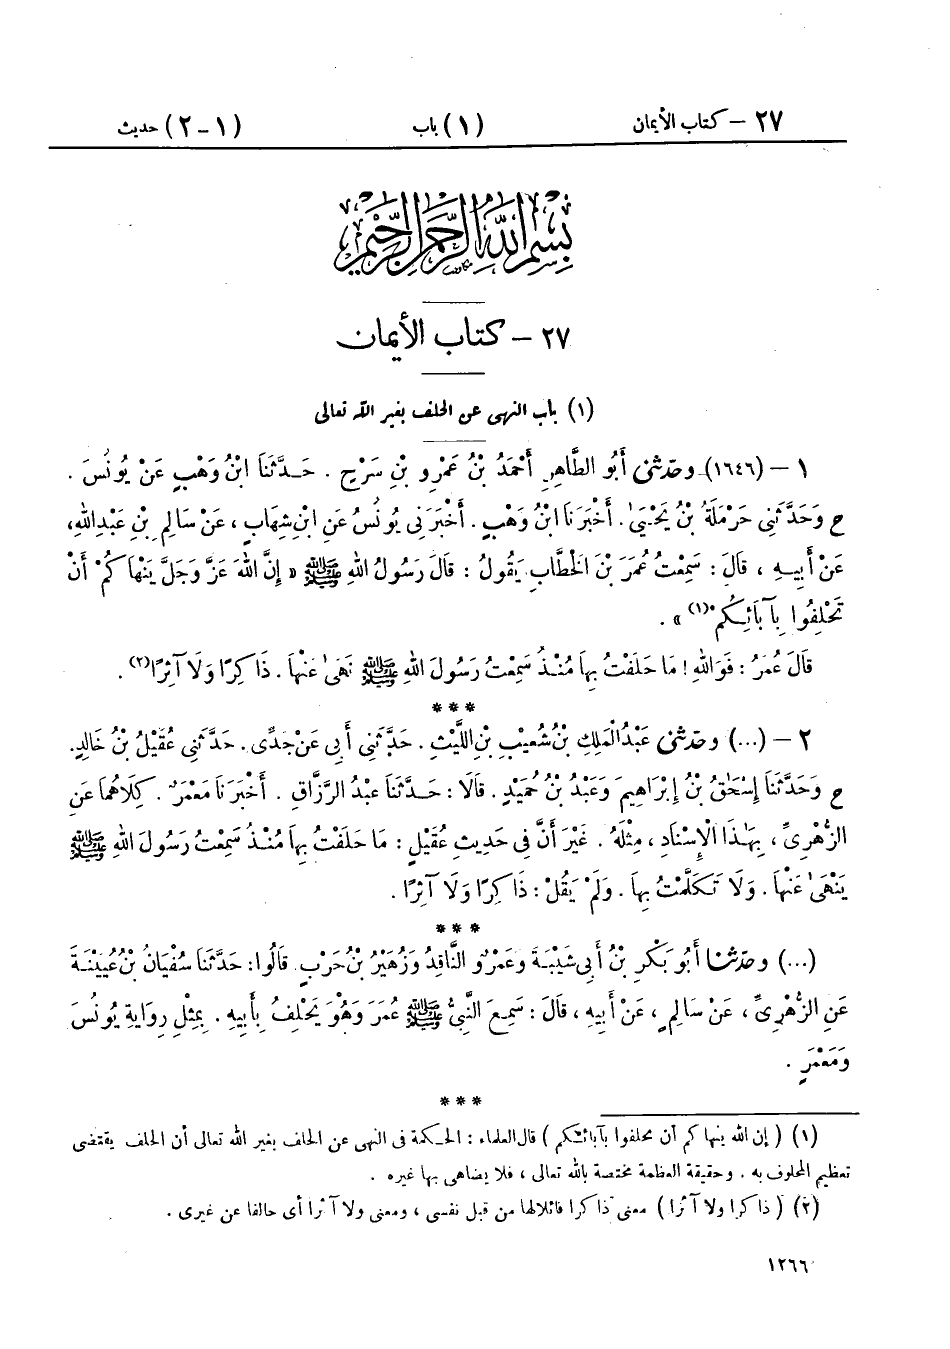 ٢٧ – كتاب الأيمان (١) باب (١ – ٢) حديث
بسم الله الرحمن الرحيم
٢٧ – كتاب الأيمان
(١) باب النهى عن الحلف بغير الله تعالى
١ – (١٦٤٦) وحدّثنى أَبُو الطَّاهِرِ أَحْمَدُ بْنُ عَمْرِو بْنِ سَرْحٍ . حَدَّثَنَا ابْنُ وَهْبٍ عَنْ يُونُسَ .
ح وَحَدَّثَنِي حَرْمَلَةُ بْنُ يَحْيَىٰ . أَخْبَرَنَا ابْنُ وَهْبٍ . أَخْبَرَنِي يُونُسُ عَنِ ابْنِ شِهَابٍ ، عَنْ سَالِمِ بْنِ عَبْدِ اللهِ،
عَنْ أَبِيهِ ، قَالَ : سَمِعْتُ عُمَرَ بْنَ الْخَطَّابِ يَقُولُ : قَالَ رَسُولُ اللهِ ﷺ « إِنَّ اللهَ عَزَّ وَجَلَّ يَنْهَاكُمْ أَنْ
تَحْلِفُوا بِآبَائِكُمْ(١) » .
قَالَ عُمَرُ : فَوَاللهِ ! مَا حَلَفْتُ بِهَا مُنْذُ سَمِعْتُ رَسُولَ اللهِ ﷺ نَهَىٰ عَنْهَا . ذَاكِرًا وَلَا آثِرًا(٢) .
***
٢ – (...) وحدّثنى عَبْدُ الْمَلِكِ بْنُ شُعَيْبِ بْنِ اللَّيْثِ . حَدَّثَنِي أَبِي عَنْ جَدِّى . حَدَّثَنِي عُقَيْلُ بْنُ خَالِدٍ.
ح وَحَدَّثَنَا إِسْحَٰقُ بْنُ إِبْرَاهِيمَ وَعَبْدُ بْنُ حُمَيْدٍ . قَالَا : حَدَّثَنَا عَبْدُ الرَّزَّاقِ . أَخْبَرَنَا مَعْمَرٌ . كِلَاهُمَا عَنِ
الزُّهْرِىِّ ، بِهَٰذَا الْإِسْنَادِ ، مِثْلَهُ . غَيْرَ أَنَّ فِي حَدِيثِ عُقَيْلٍ : مَا حَلَفْتُ بِهَا مُنْذُ سَمِعْتُ رَسُولَ اللهِ ﷺ
يَنْهَىٰ عَنْهَا . وَلَا تَكَلَّمْتُ بِهَا . وَلَمْ يَقُلْ : ذَاكِرًا وَلَا آثِرًا .
***
(...) وحدّثنا أَبُو بَكْرِ بْنُ أَبِي شَيْبَةَ وَعَمْرٌو النَّاقِدُ وَزُهَيْرُ بْنُ حَرْبٍ . قَالُوا : حَدَّثَنَا سُفْيَانُ بْنُ عُيَيْنَةَ
عَنِ الزُّهْرِىِّ ، عَنْ سَالِمٍ ، عَنْ أَبِيهِ ، قَالَ : سَمِعَ النَّبِيُّ ﷺ عُمَرَ وَهُوَ يَحْلِفُ بِأَبِيهِ . بِمِثْلِ رِوَايَةِ يُونُسَ
وَمَعْمَرٍ .
***
(١) ( إن الله ينهاكم أن تحلفوا بآبائكم ) قال العلماء : الحكمة فى النهى عن الحلف بغير الله تعالى أن الحلف يقتضى
تعظيم المحلوف به . وحقيقة العظمة مختصة بالله تعالى ، فلا يضاهى بها غيره .
(٢) ( ذاكرا ولا آثرا ) معنى ذاكرا قائلا لها من قبل نفسى ، ومعنى ولا آثرا أى حالفا عن غيرى .
١٢٦٦